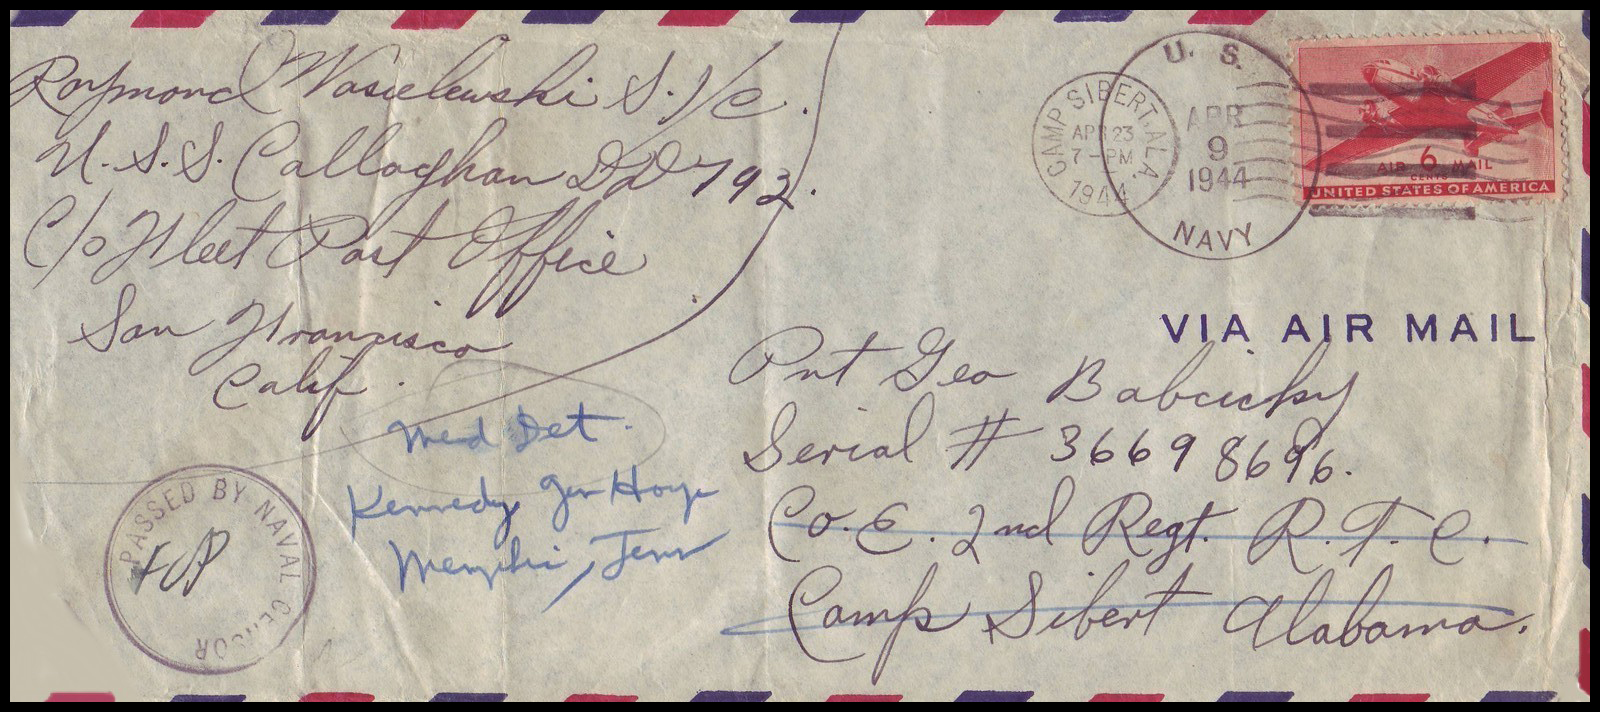 Raymond Wasielewski S. 1/c.
U.S.S. Callaghan DD 792.
c/o Fleet Post Office
San Francisco
Calif.
CAMP SIBERT, ALA.
APR 23
7 - PM
1944
U. S.
APR
9
1944
NAVY
AIR 6 MAIL
CENTS
UNITED STATES OF AMERICA
VIA AIR MAIL
Pvt Geo Babcicky
Serial # 36698696.
Co. E. 2nd Regt. R. T. C.
Camp Sibert Alabama.
Med Det.
Kennedy Gen Hosp
Memphis, Tenn
PASSED BY NAVAL CENSOR